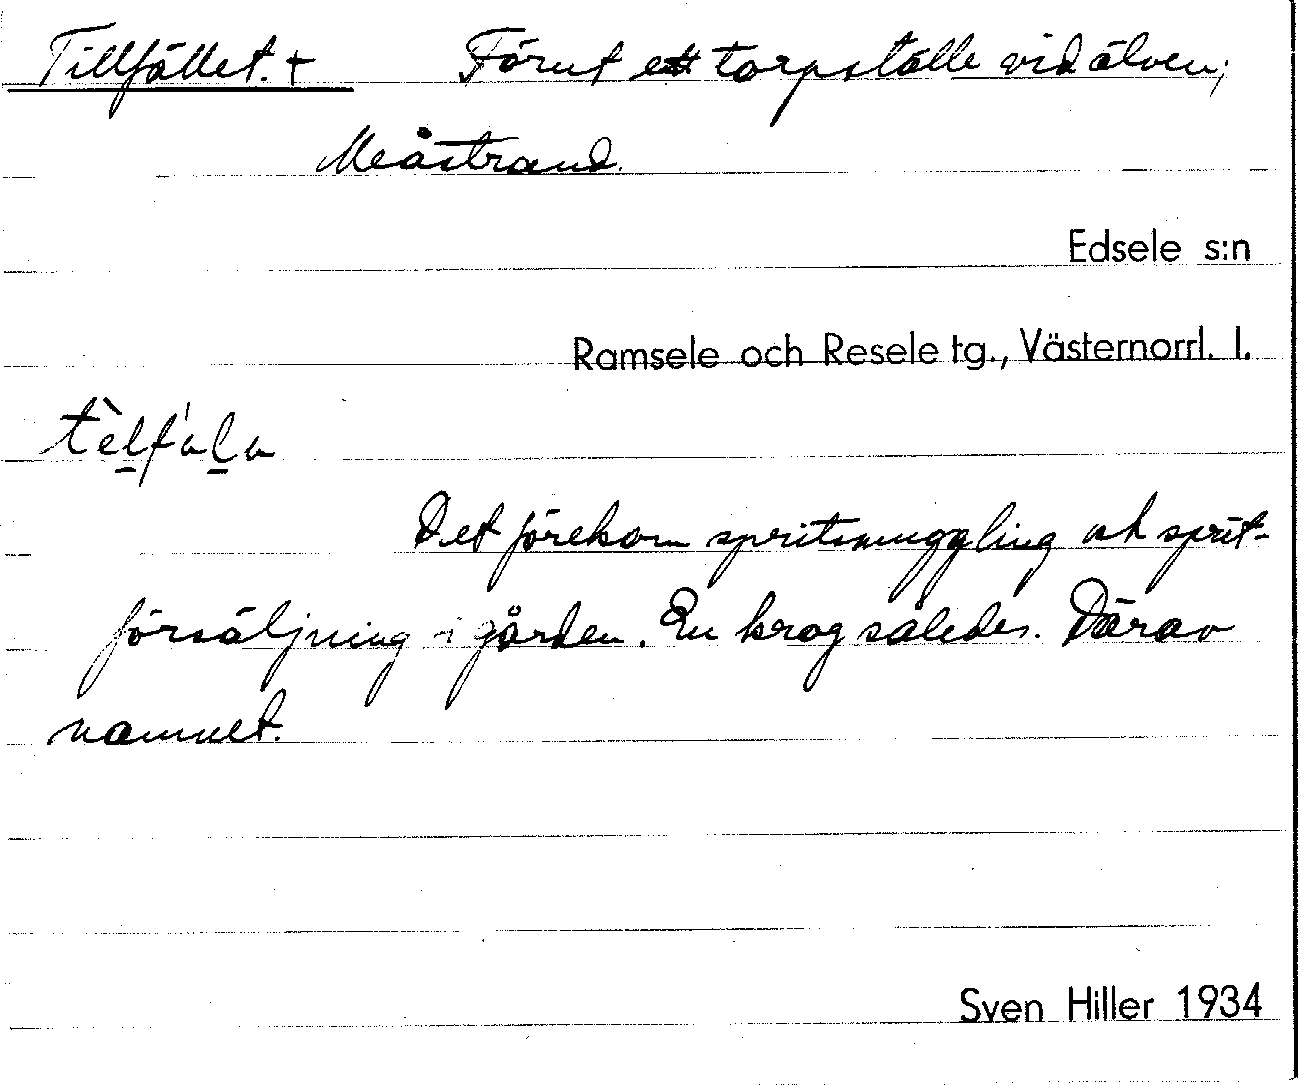 Tillfället. + Förut ett torpställe vid älven;
Meåstrand.
Edsele s:n
Ramsele och Resele tg., Västernorrl. l.
tèlfála
Det förekom spritsmuggling och sprit-
försäljning i gården. En krog således. Därav
namnet.
Sven Hiller 1934